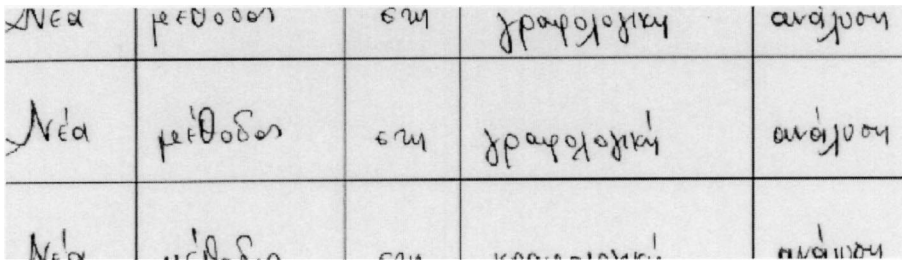 Νέα μέθοδος στη γραφολογική ανάλυση
Νέα μέθοδος στη γραφολογική ανάλυση
Νέα μέθοδο στη γραφολογική ανάλυση